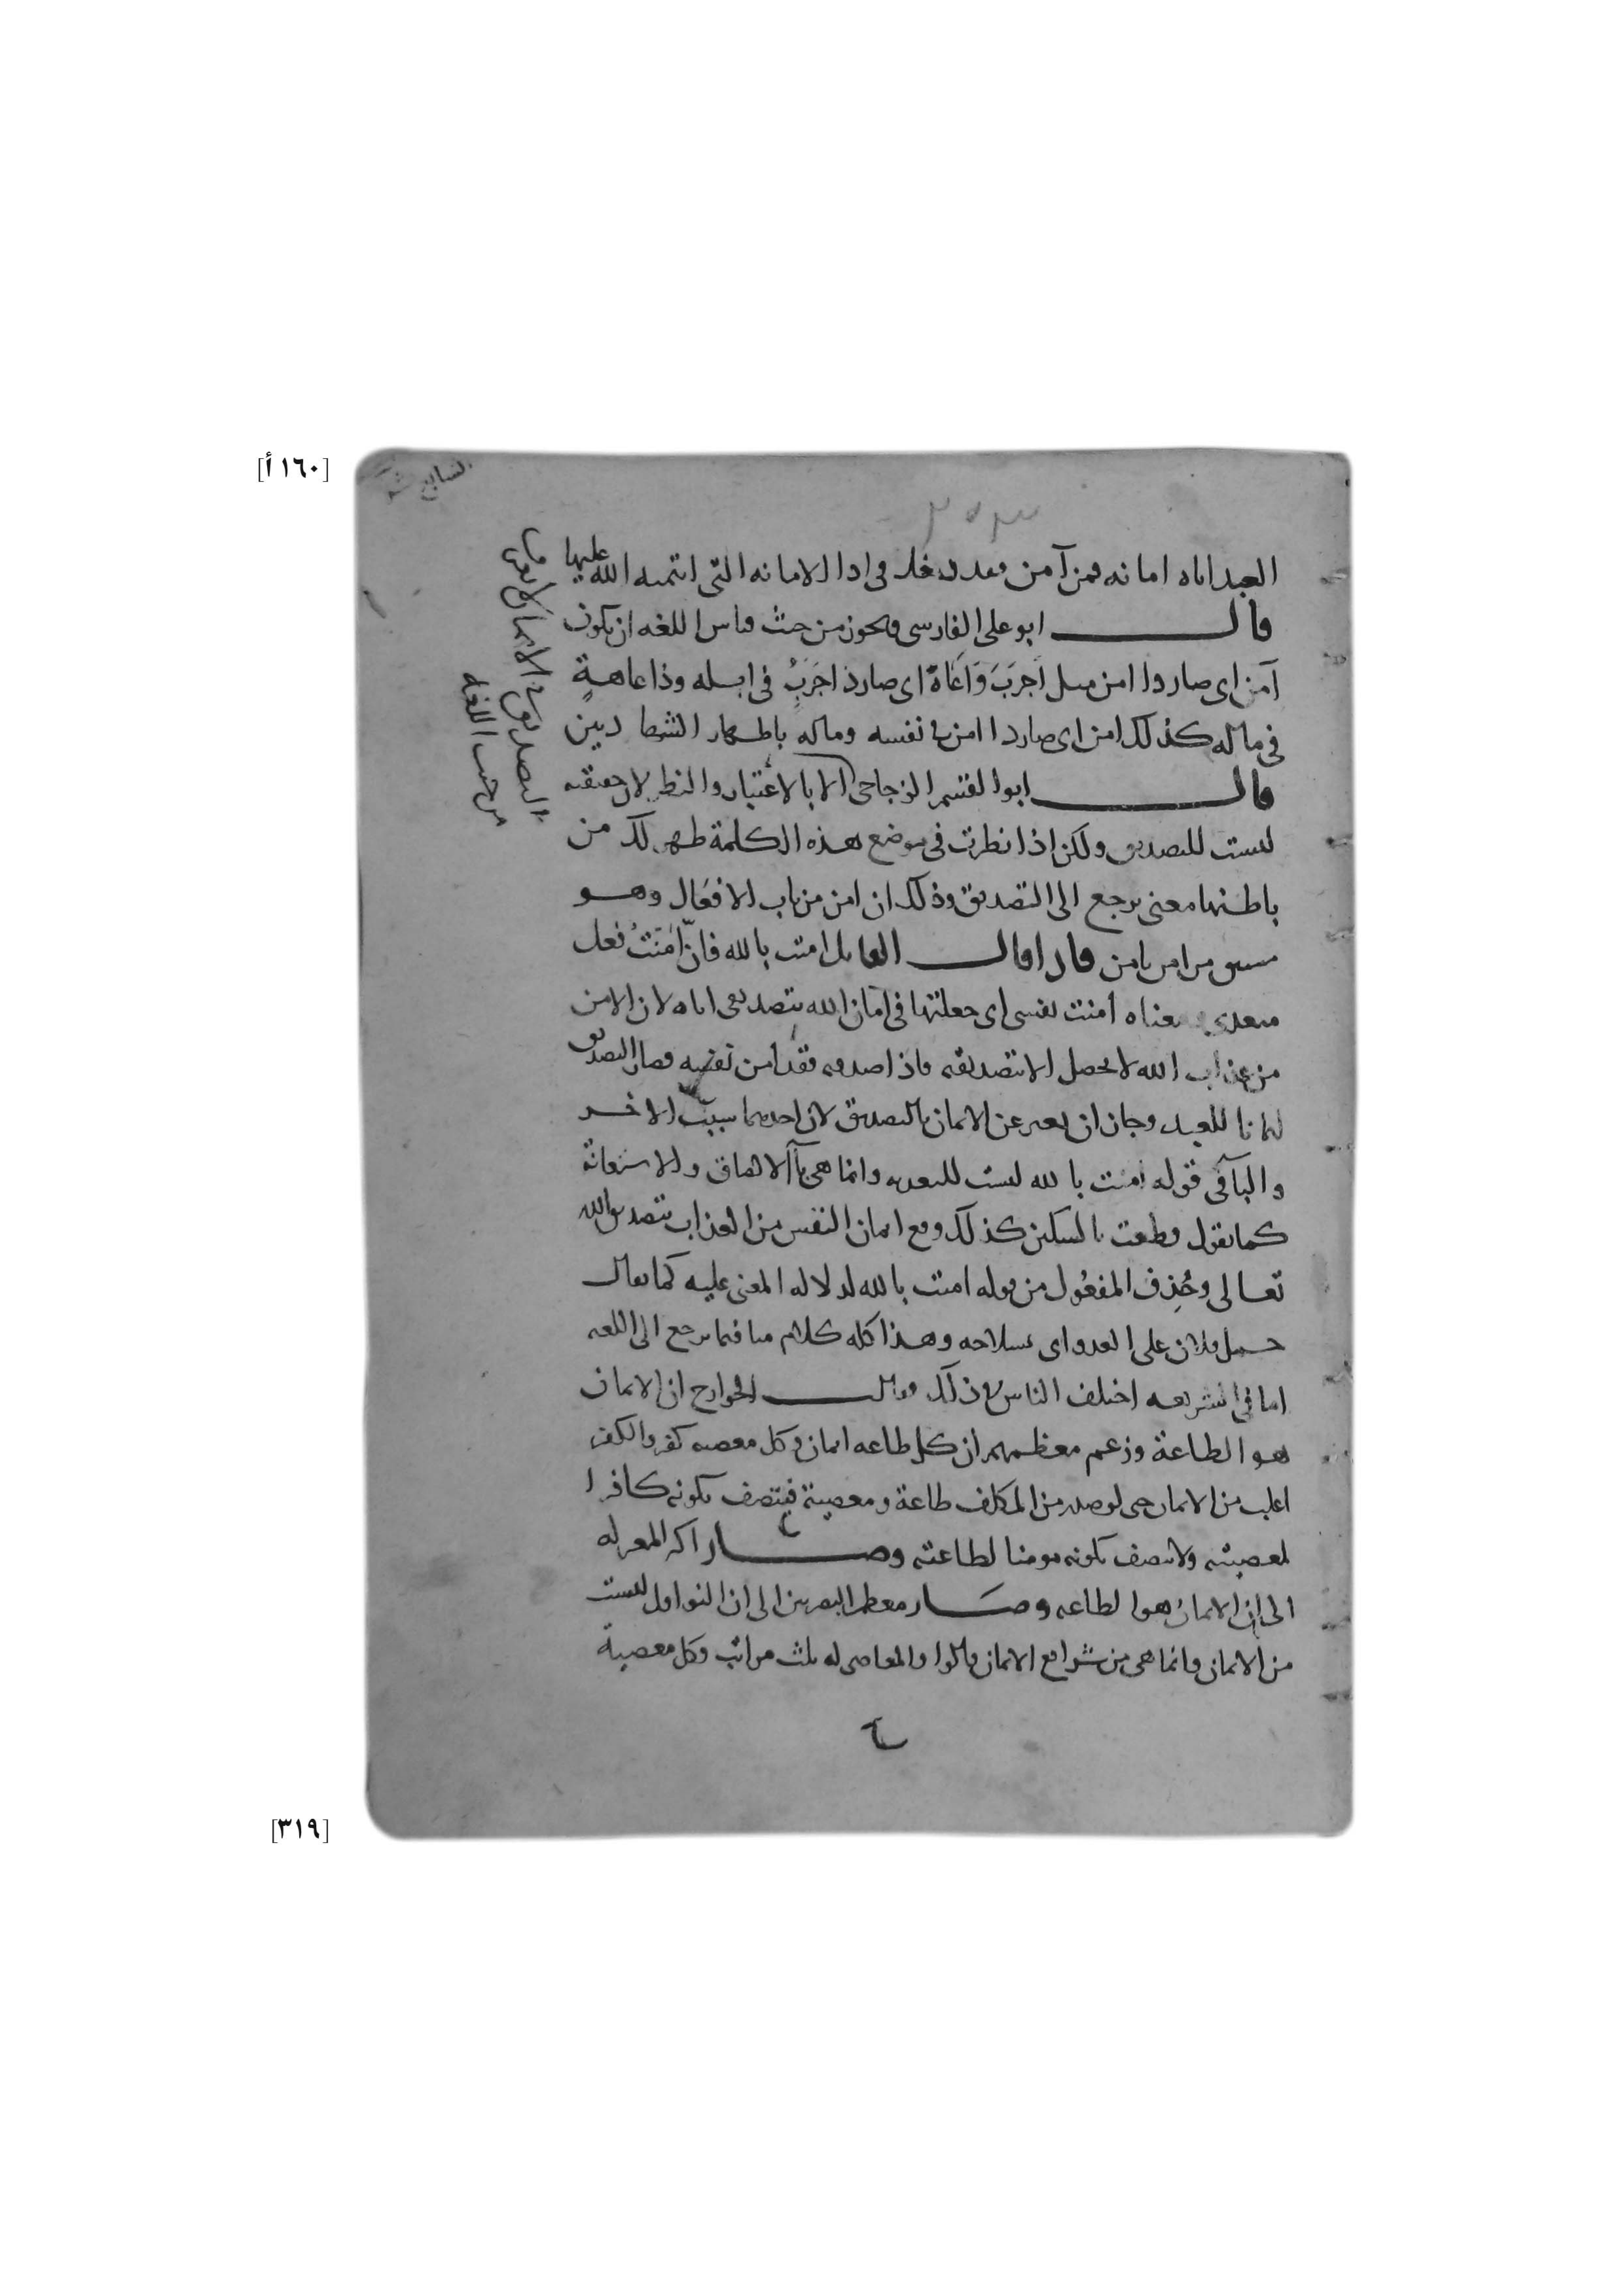 [١٦٠ أ]
العبد اياه امانه فمن آمن فقد دخل في ادا الامانه التى ائتمنه الله عليها
قال ابو على الفارسى ويجوز من حيث قياس اللغه ان يكون
آمن اى صار ذا امن مثل اجرَبَ وَاَعَاهَ اى صار ذا جَرَبٍ فى ابله وذا عاهةٍ
فى ماله كذلك امن اى صار ذا امن فى نفسه وماله باظهار الشهادتين
قال ابوا لقسم الزجاجى الا بالاعتبار والنظر لان حقيقته
ليست للتصديق ولكن اذا نظرت فى موضع هذه الكلمة ظهر لك من
باطنها معنى يرجع الى التصديق وذلك ان امن من باب الافعَال وهو
من امن يامن فاذا قال القايل امنت بالله فانّ اٰمَنتُ فعل
متعدى معناه أمنت نفسى اى جعلتها فى امان الله بتصديقى اياه لان الامن
من عذاب الله لا يحصل الا بتصديقه فاذا صدقه فقد امن نفسه فصار التصديق
امانا للعبد وجاز ان يعبر عن الايمان بالتصديق لان احدهما سبب الاخر
والبآ فى قوله امنت بالله ليست للتعديه وانما هى بآ الالصاق والاستعانة
كما تقول قطعت بالسكين كذلك وقع امان النفس من العذاب بتصديق الله
تعالى وحُذِف المفعُول من قوله امنت بالله لدلاله المعنى عليه كما يقال
حمل فلان على العدو اى بسلاحه وهذا كله كلام منا فيما يرجع الى اللغه
اما فى الشريعه اختلف الناس فى ذلك فقالت الخوارج ان الايمان
هو الطاعة وزعم معظمهم ان كل طاعه ايمان وكل معصيه كفر والكفر
اغلب من الايمان حتى لو صدر من المكلف طاعة ومعصية فيتصف بكونه كافرا
لمعصيته ولا يتصف بكونه مومنا لطاعته وصار اكثر المعتزله
الى ان الايمان هو الطاعه وصَار معظم البصريين الى ان النوافل ليست
من الايمان وانما هى من شرايع الايمان قالوا والمعاصى له ثلث مراتب وكل معصية
الايمان
التصديق
من حيث اللغه
[٣١٩]